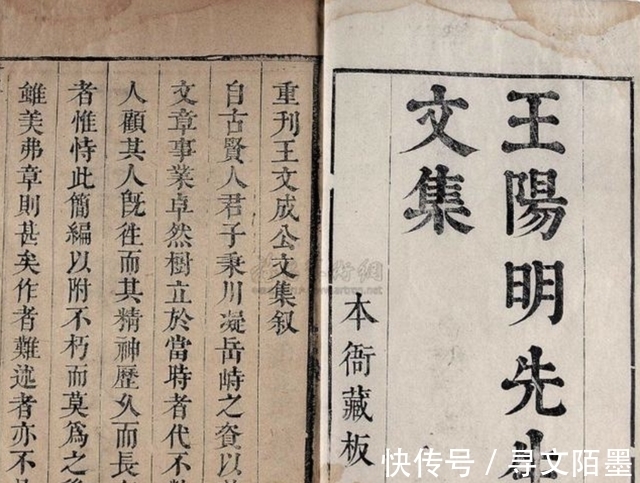 王陽明先生
文集
本衙藏板
重刊王文成公文集叙
自古賢人君子秉川凝岳峙之資以
文章事業卓然樹立於當時者代不
人顧其人旣徃而其精神歷久而長
者惟恃此簡編以附不朽而莫爲之
雖美弗章則甚矣作者難述者亦不
快传号／寻文陌墨